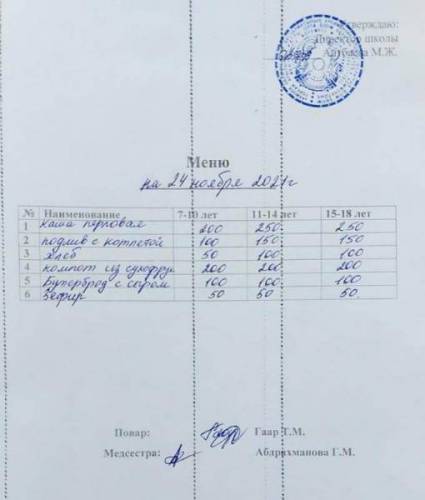 Утверждаю:
Директор школы
М.Ж.
Меню
на 24 ноября 2021г
№ Наименование 7-10 лет 11-14 лет 15-18 лет
1 каша перловая 200 250 250
2 подлив с котлетой 100 150 150
3 хлеб 50 100 100
4 компот из сухофру 200 200 200
5 Бутерброд с сыром 100 100 100
6 Зефир 50 50 50
Повар: Гаар Т.М.
Медсестра: Абдрахманова Г.М.